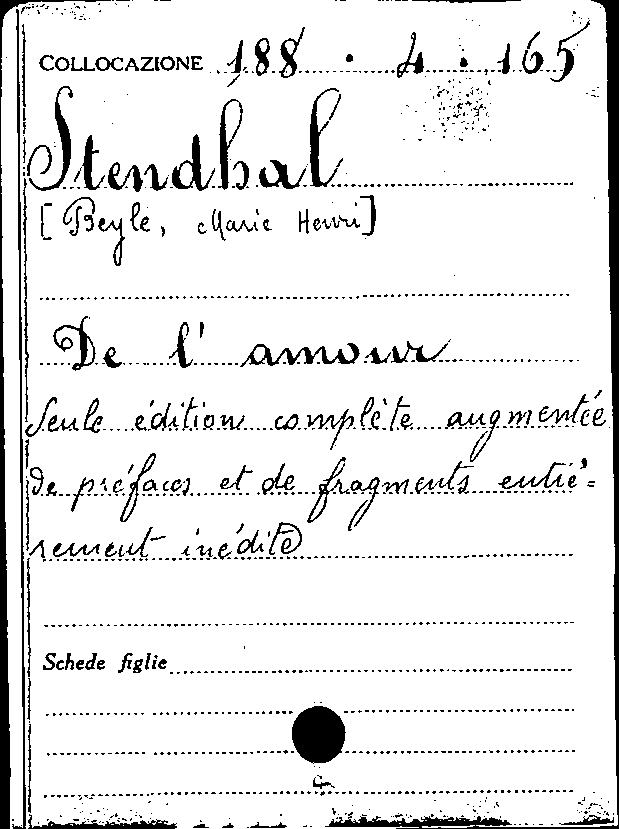 COLLOCAZIONE 188 . 4 . 165
Stendhal
[Beyle, Marie Henri]
De l' amour
Seule édition complète augmentée
de préfaces et de fragments entiè=
rement inédits
Schede figlie